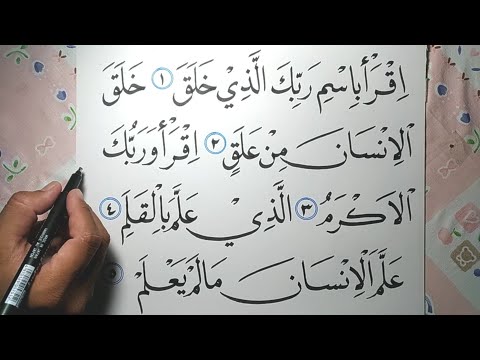 اِقْرَأْ بِاسْمِ رَبِّكَ الَّذِيْ خَلَقَ ١ خَلَقَ
الْاِنْسَانَ مِنْ عَلَقٍ ٢ اِقْرَأْ وَرَبُّكَ
الْاَكْرَمُ ٣ الَّذِيْ عَلَّمَ بِالْقَلَمِ ٤
عَلَّمَ الْاِنْسَانَ مَا لَمْ يَعْلَمْ ٥